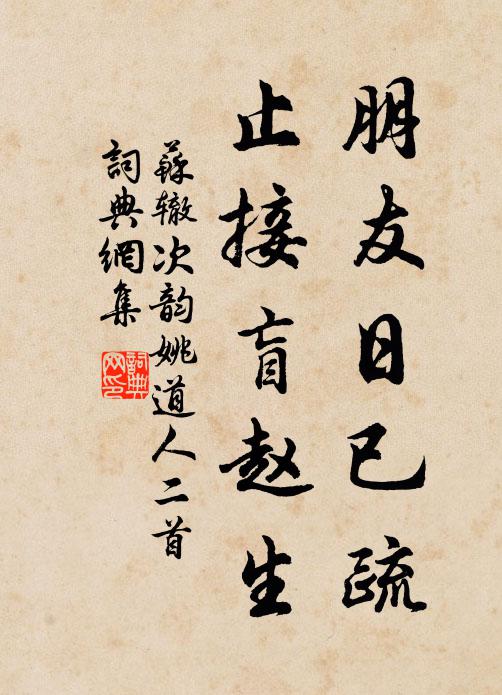 朋友日已疏
止接盲赵生
蘇辙次韵姚道人二首
詞典網集
詞典
网印